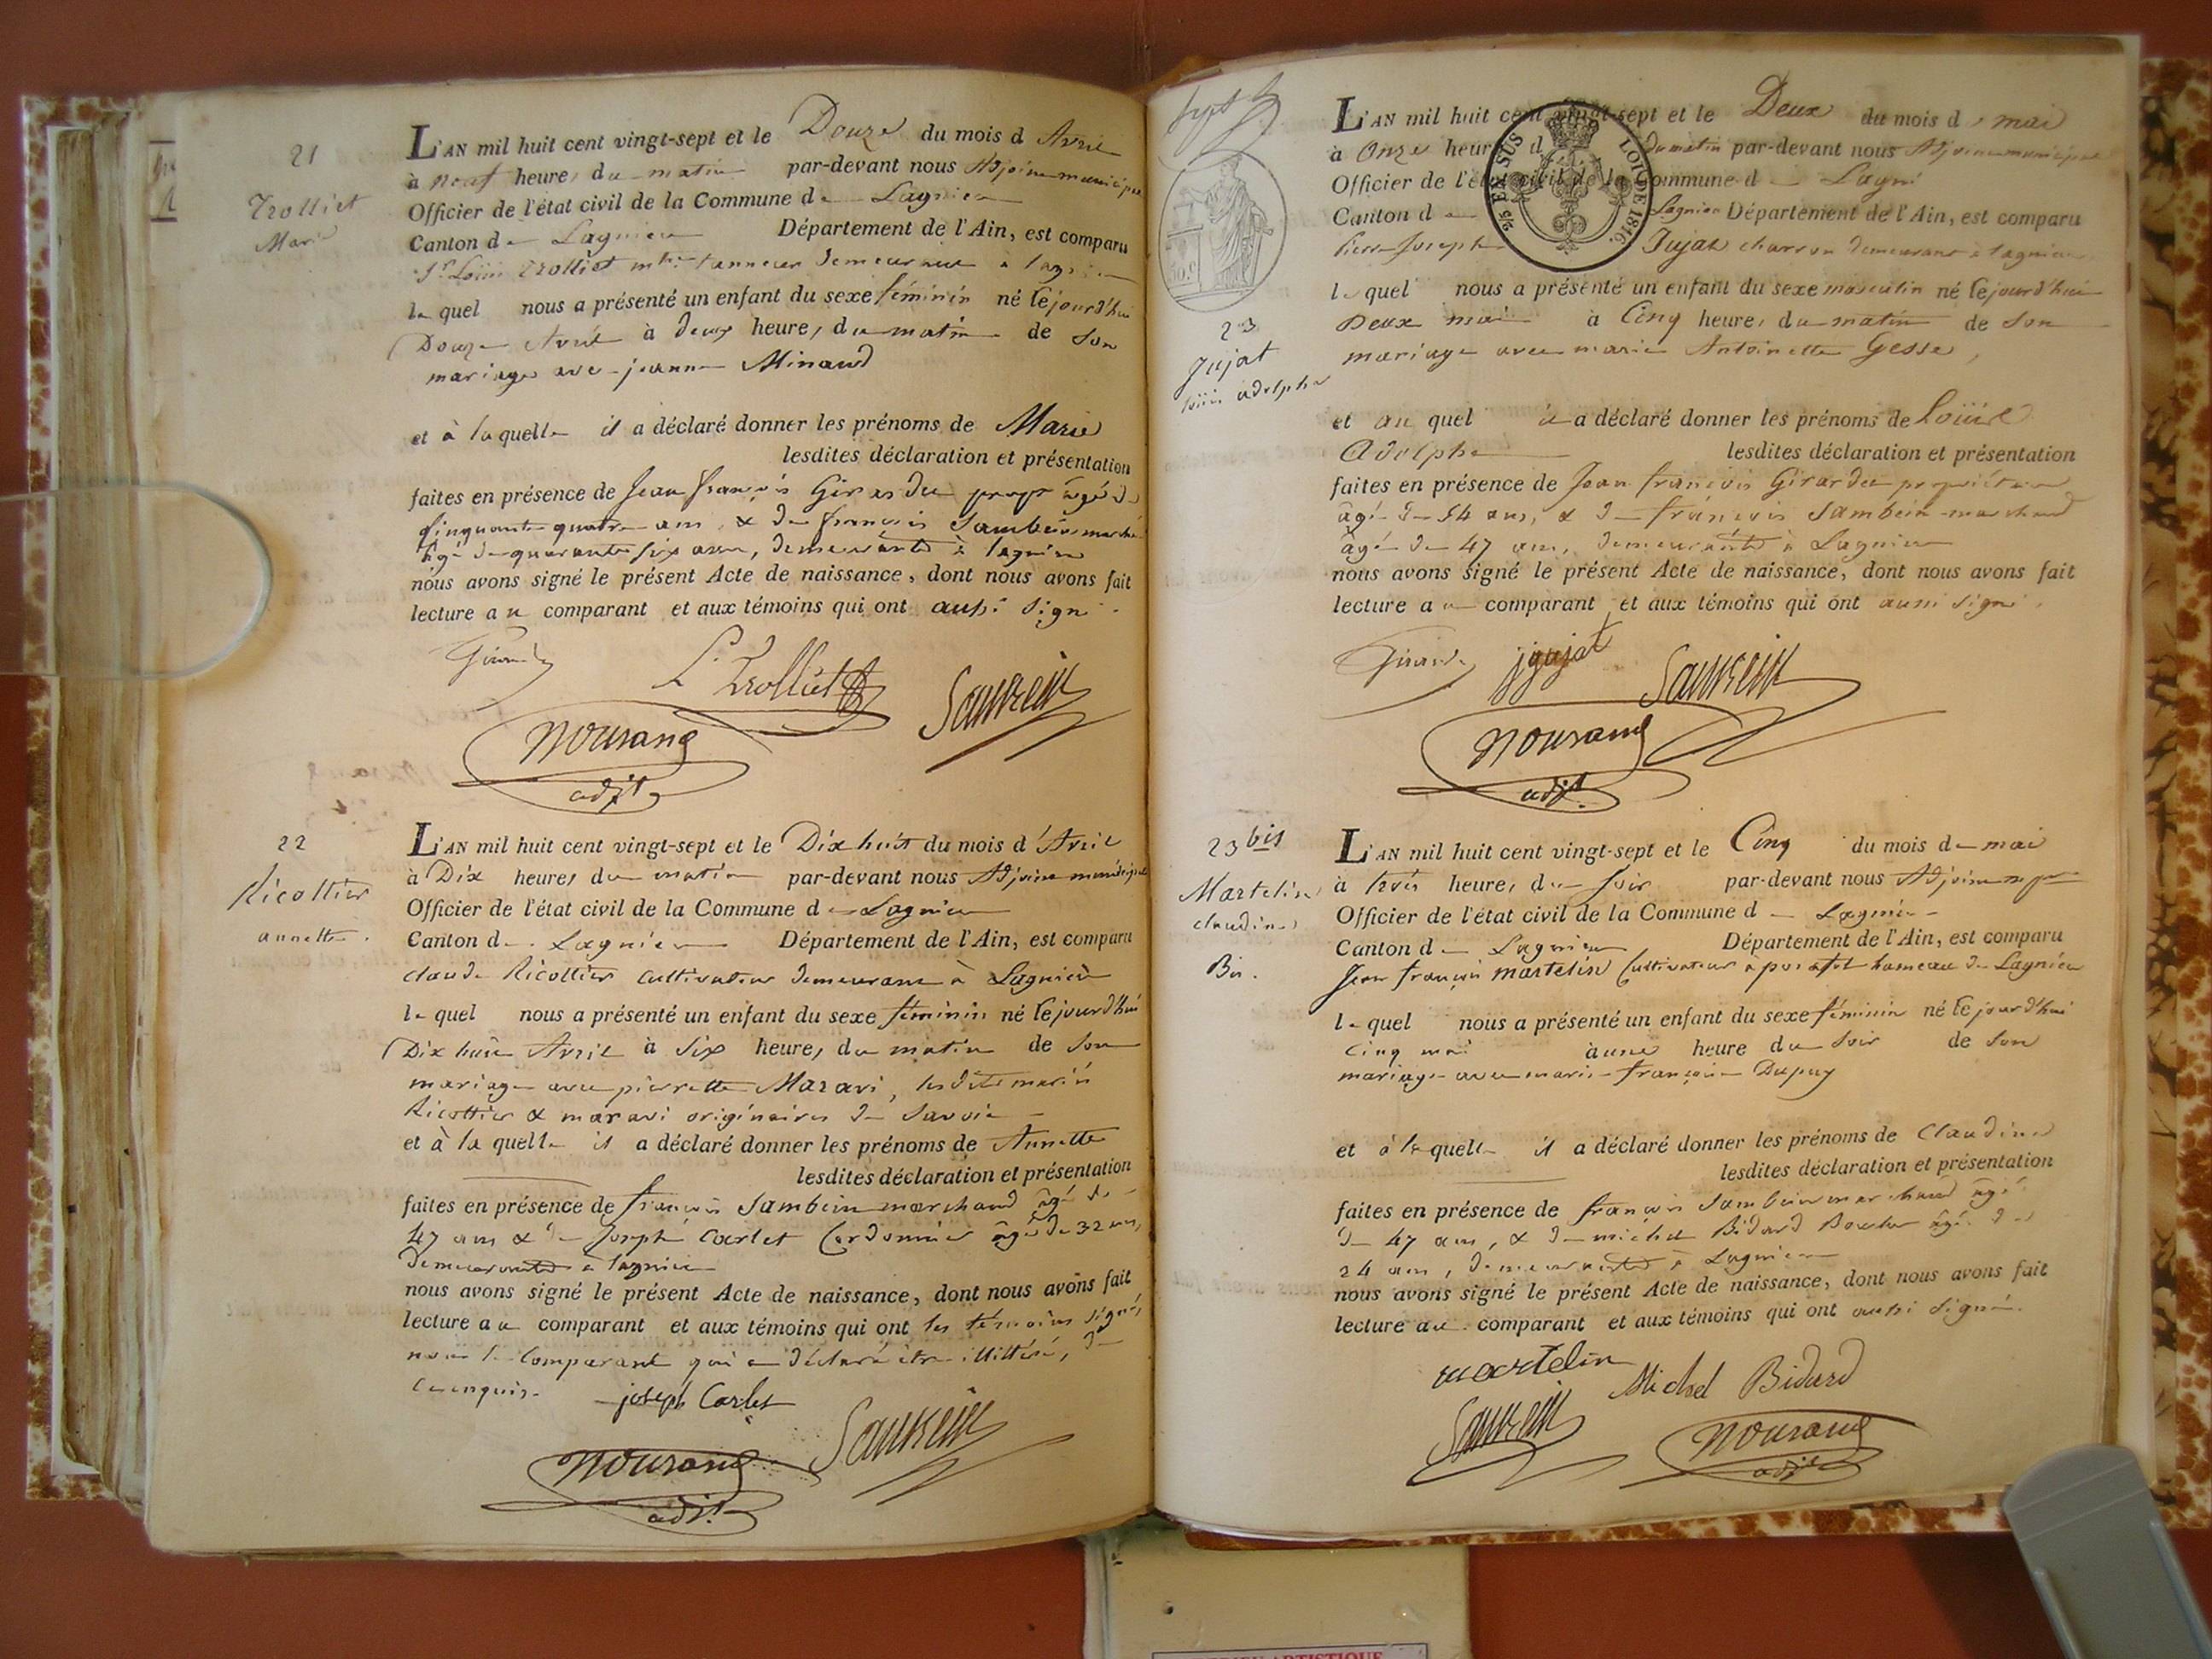 21
Trolliet
Marie
L'AN mil huit cent vingt-sept et le Douze du mois d Avril
à neuf heures du matin par-devant nous Adjoint municipal
Officier de l'état civil de la Commune de Lagnieu
Canton de Lagnieu Département de l'Ain, est comparu
Sr Loüis Trolliet tanneur demeurant à Lagnieu
le quel nous a présenté un enfant du sexe féminin né cejourd'hui
Douze Avril à deux heures du matin de son
mariage avec jeanne Minaud
et à laquelle il a déclaré donner les prénoms de Marie
lesdites déclaration et présentation
faites en présence de Jean françois Girardu propre âgé de
cinquante quatre ans, & de françois Sambein march
âgé de quarante six ans, demeurants à Lagnieu
nous avons signé le présent Acte de naissance, dont nous avons fait
lecture au comparant et aux témoins qui ont aussi signé.
L. Trolliet
adjt
22
Ricottier
annette.
L'AN mil huit cent vingt-sept et le Dix huit du mois d'Avril
à Dix heures du matin par-devant nous Adjoint municipal
Officier de l'état civil de la Commune de Lagnieu
Canton de Lagnieu Département de l'Ain, est comparu
claude Ricottier cultivateur demeurant à Lagnieu
le quel nous a présenté un enfant du sexe féminin né cejourd'hui
Dix huit Avril à six heures du matin de son
mariage avec pierrette Maravi, lesdits mariés
Ricottier & maravi originaires de Savoie
et à la quelle il a déclaré donner les prénoms de Annette
lesdites déclaration et présentation
faites en présence de françois Sambein marchand âgé de
47 ans & de Joseph Carlet Cordonnier âgé de 32 ans,
demeurants à Lagnieu
nous avons signé le présent Acte de naissance, dont nous avons fait
lecture au comparant et aux témoins qui ont les témoins signé,
non le Comparant qui a déclaré être illittéré, de
ce enquis.
joseph Carlet
adjt
sept
23
Jujat
loüis adolphe
L'AN mil huit cent vingt-sept et le Deux du mois de mai
à Onze heures du matin par-devant nous Adjoint municipal
Officier de l'état civil de la Commune de Lagni
Canton de Lagnieu Département de l'Ain, est comparu
Pierre Joseph Jujat charron demeurant à Lagnieu
le quel nous a présenté un enfant du sexe masculin né cejourd'hui
Deux mai à Cinq heures du matin de son
mariage avec marie Antoinette Gesse,
et au quel il a déclaré donner les prénoms de Loüis
Adolphe lesdites déclaration et présentation
faites en présence de Jean françois Girardu propriétaire
âgé de 54 ans, & de françois Sambein marchand
âgé de 47 ans, demeurants à Lagnieu
nous avons signé le présent Acte de naissance, dont nous avons fait
lecture au comparant et aux témoins qui ont aussi signé.
jjujat
adjt.
LOI DE 1816.
23 bis
Martelin
claudine
Bis.
L'AN mil huit cent vingt-sept et le Cinq du mois de mai
à trois heures du soir par-devant nous Adjoint
Officier de l'état civil de la Commune de Lagnieu
Canton de Lagnieu Département de l'Ain, est comparu
Jean françois martelin Cultivateur à hameau de Lagnieu
le quel nous a présenté un enfant du sexe féminin né cejourd'hui
cinq mai à une heure du soir de son
mariage avec marie françoise Dupuy
et à la quelle il a déclaré donner les prénoms de Claudine
lesdites déclaration et présentation
faites en présence de françois Sambein marchand âgé
de 47 ans, & de michel Bidard Boucher âgé de
24 ans, demeurants à Lagnieu
nous avons signé le présent Acte de naissance, dont nous avons fait
lecture au comparant et aux témoins qui ont aussi signé.
martelin
Michel Bidard
adjt
ARTISTIQUE